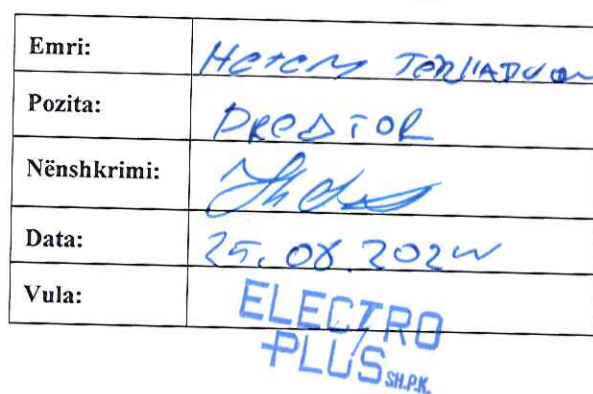 Emri: Hetem
Pozita: DREDTOR
Nënshkrimi:
Data: 25.08.202
Vula: ELECTRO
PLUS SH.P.K.